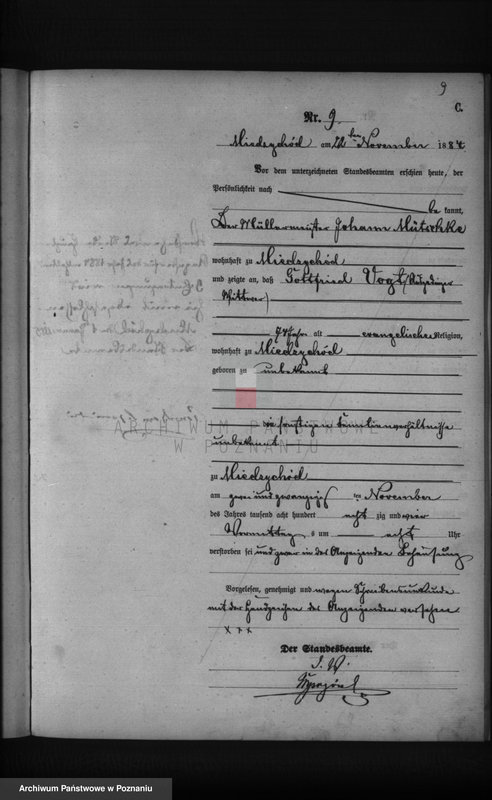 9
C.
Nr. 9.
Miedzychód am 22ten November 1884.
Vor dem unterzeichneten Standesbeamten erschien heute, der
Persönlichkeit nach
be kannt,
Der Müllermeister Johann
wohnhaft zu Miedzychód
und zeigte an, daß Gottfried Vogt
Wittwer)
74 Jahre alt evangelischer Religion,
wohnhaft zu Miedzychód
geboren zu unbekannt
die sonstigen Familienverhältnisse
unbekannt
ARCHIWUM PAŃSTWOWE
W POZNANIU
zu Miedzychód
am zwei und zwanzigsten November
des Jahres tausend acht hundert acht zig und vier
Vormittags um acht Uhr
verstorben sei und zwar in der Anzeigenden Behausung
Vorgelesen, genehmigt und wegen Schreibensunkunde
mit den Handzeichen des Anzeigenden versehen
+++
Der Standesbeamte.
I. V.
Archiwum Państwowe w Poznaniu